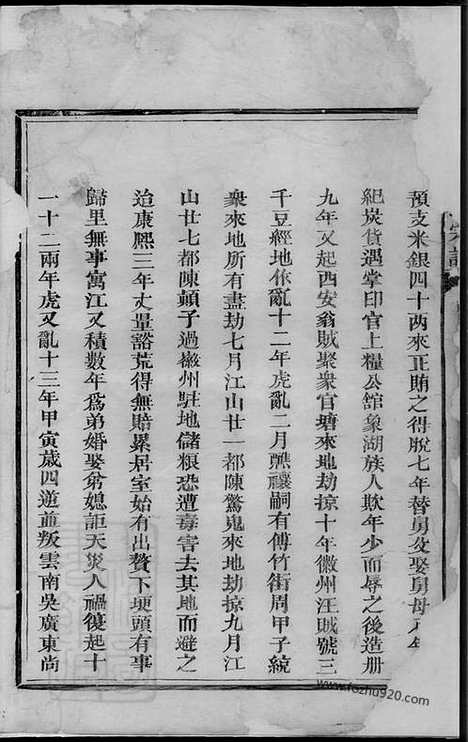 預支米銀四十两來正賄之得脫七年替舅父娶舅母八年
紀炭貨遇掌印官上糧公館象湖族人欺年少而辱之後造册
九年又起西安翁賊聚衆官塘來地刼掠十年徽州汪賊號三
千豆經地依亂十二年虎亂二月醮禳嗣有傅竹街周甲子統
衆來地所有盡刼七月江山廿一都陳驚鬼來地刼掠九月江
山廿七都陳頓子過徽州駐地儲粮恐遭毒害去其地而避之
迨康熙三年丈量豁荒得無賠累居室始有出贅下埂頭有事
歸里無事寓江又積數年爲弟婚娶弟媳詎天災人禍復起十
一十二兩年虎又亂十三年甲寅歲四逆並叛雲南吳廣東尚
www.fozhu920.com